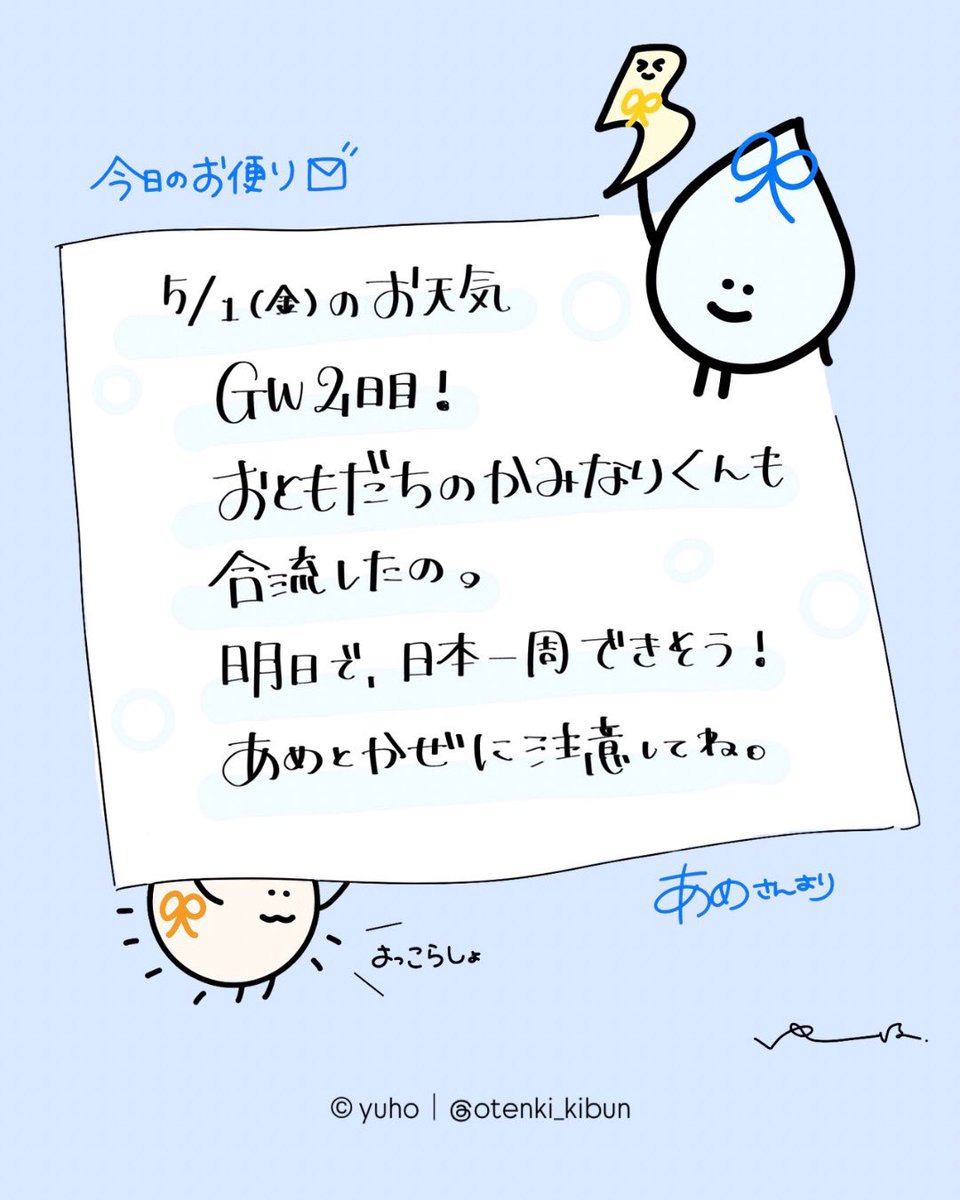 今日のお便り
5/1(金)のお天気
GW2日目!
おともだちのかみなりくんも
合流したの。
明日で、日本一周できそう!
あめとかぜに注意してね。
あめさんより
よっこらしょ
©yuho|@otenki_kibun